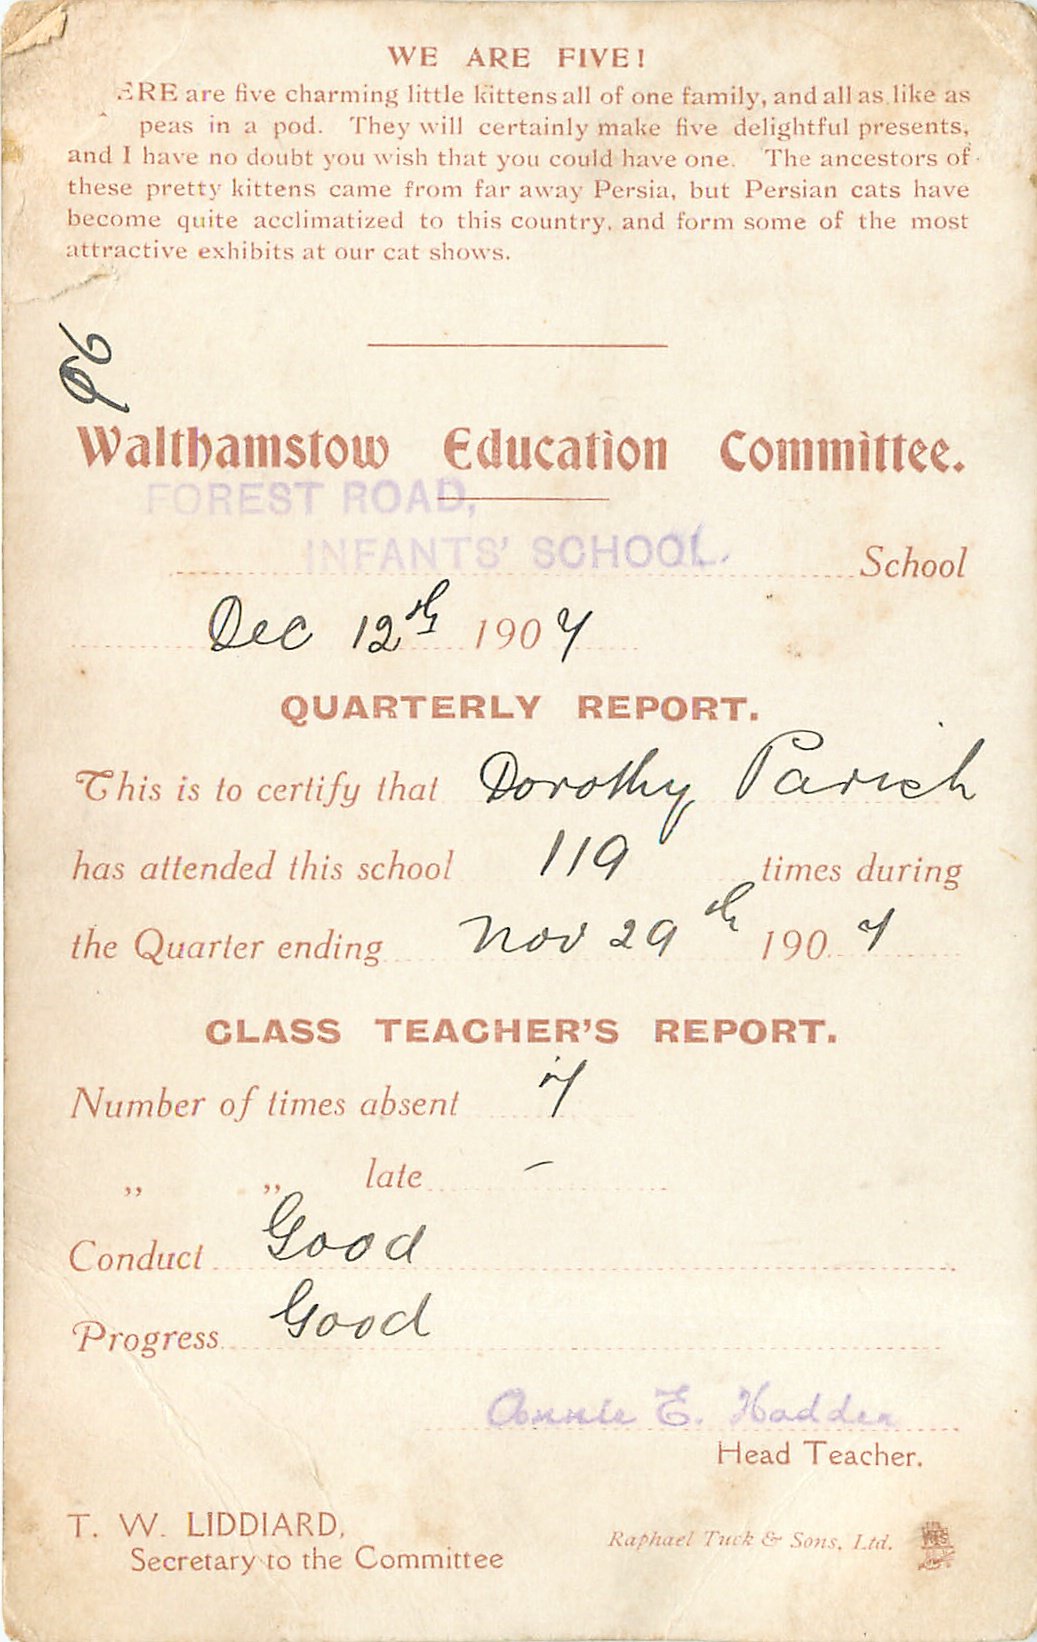 WE ARE FIVE!
ERE are five charming little kittens all of one family, and all as like as
peas in a pod. They will certainly make five delightful presents,
and I have no doubt you wish that you could have one. The ancestors of
these pretty kittens came from far away Persia, but Persian cats have
become quite acclimatized to this country, and form some of the most
attractive exhibits at our cat shows.
Walthamstow Education Committee.
FOREST ROAD,
INFANTS' SCHOOL. School
Dec 12th 1907
QUARTERLY REPORT.
This is to certify that Dorothy Parish
has attended this school 119 times during
the Quarter ending Nov 29th 1907
CLASS TEACHER'S REPORT.
Number of times absent 7
„ „ late –
Conduct Good
Progress Good
Annie E. Hadden
Head Teacher.
T. W. LIDDIARD,
Secretary to the Committee
Raphael Tuck & Sons, Ltd.